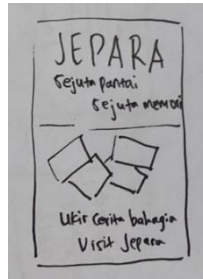 JEPARA
Sejuta pantai
Sejuta memori
Ukir cerita bahagia
Visit Jepara